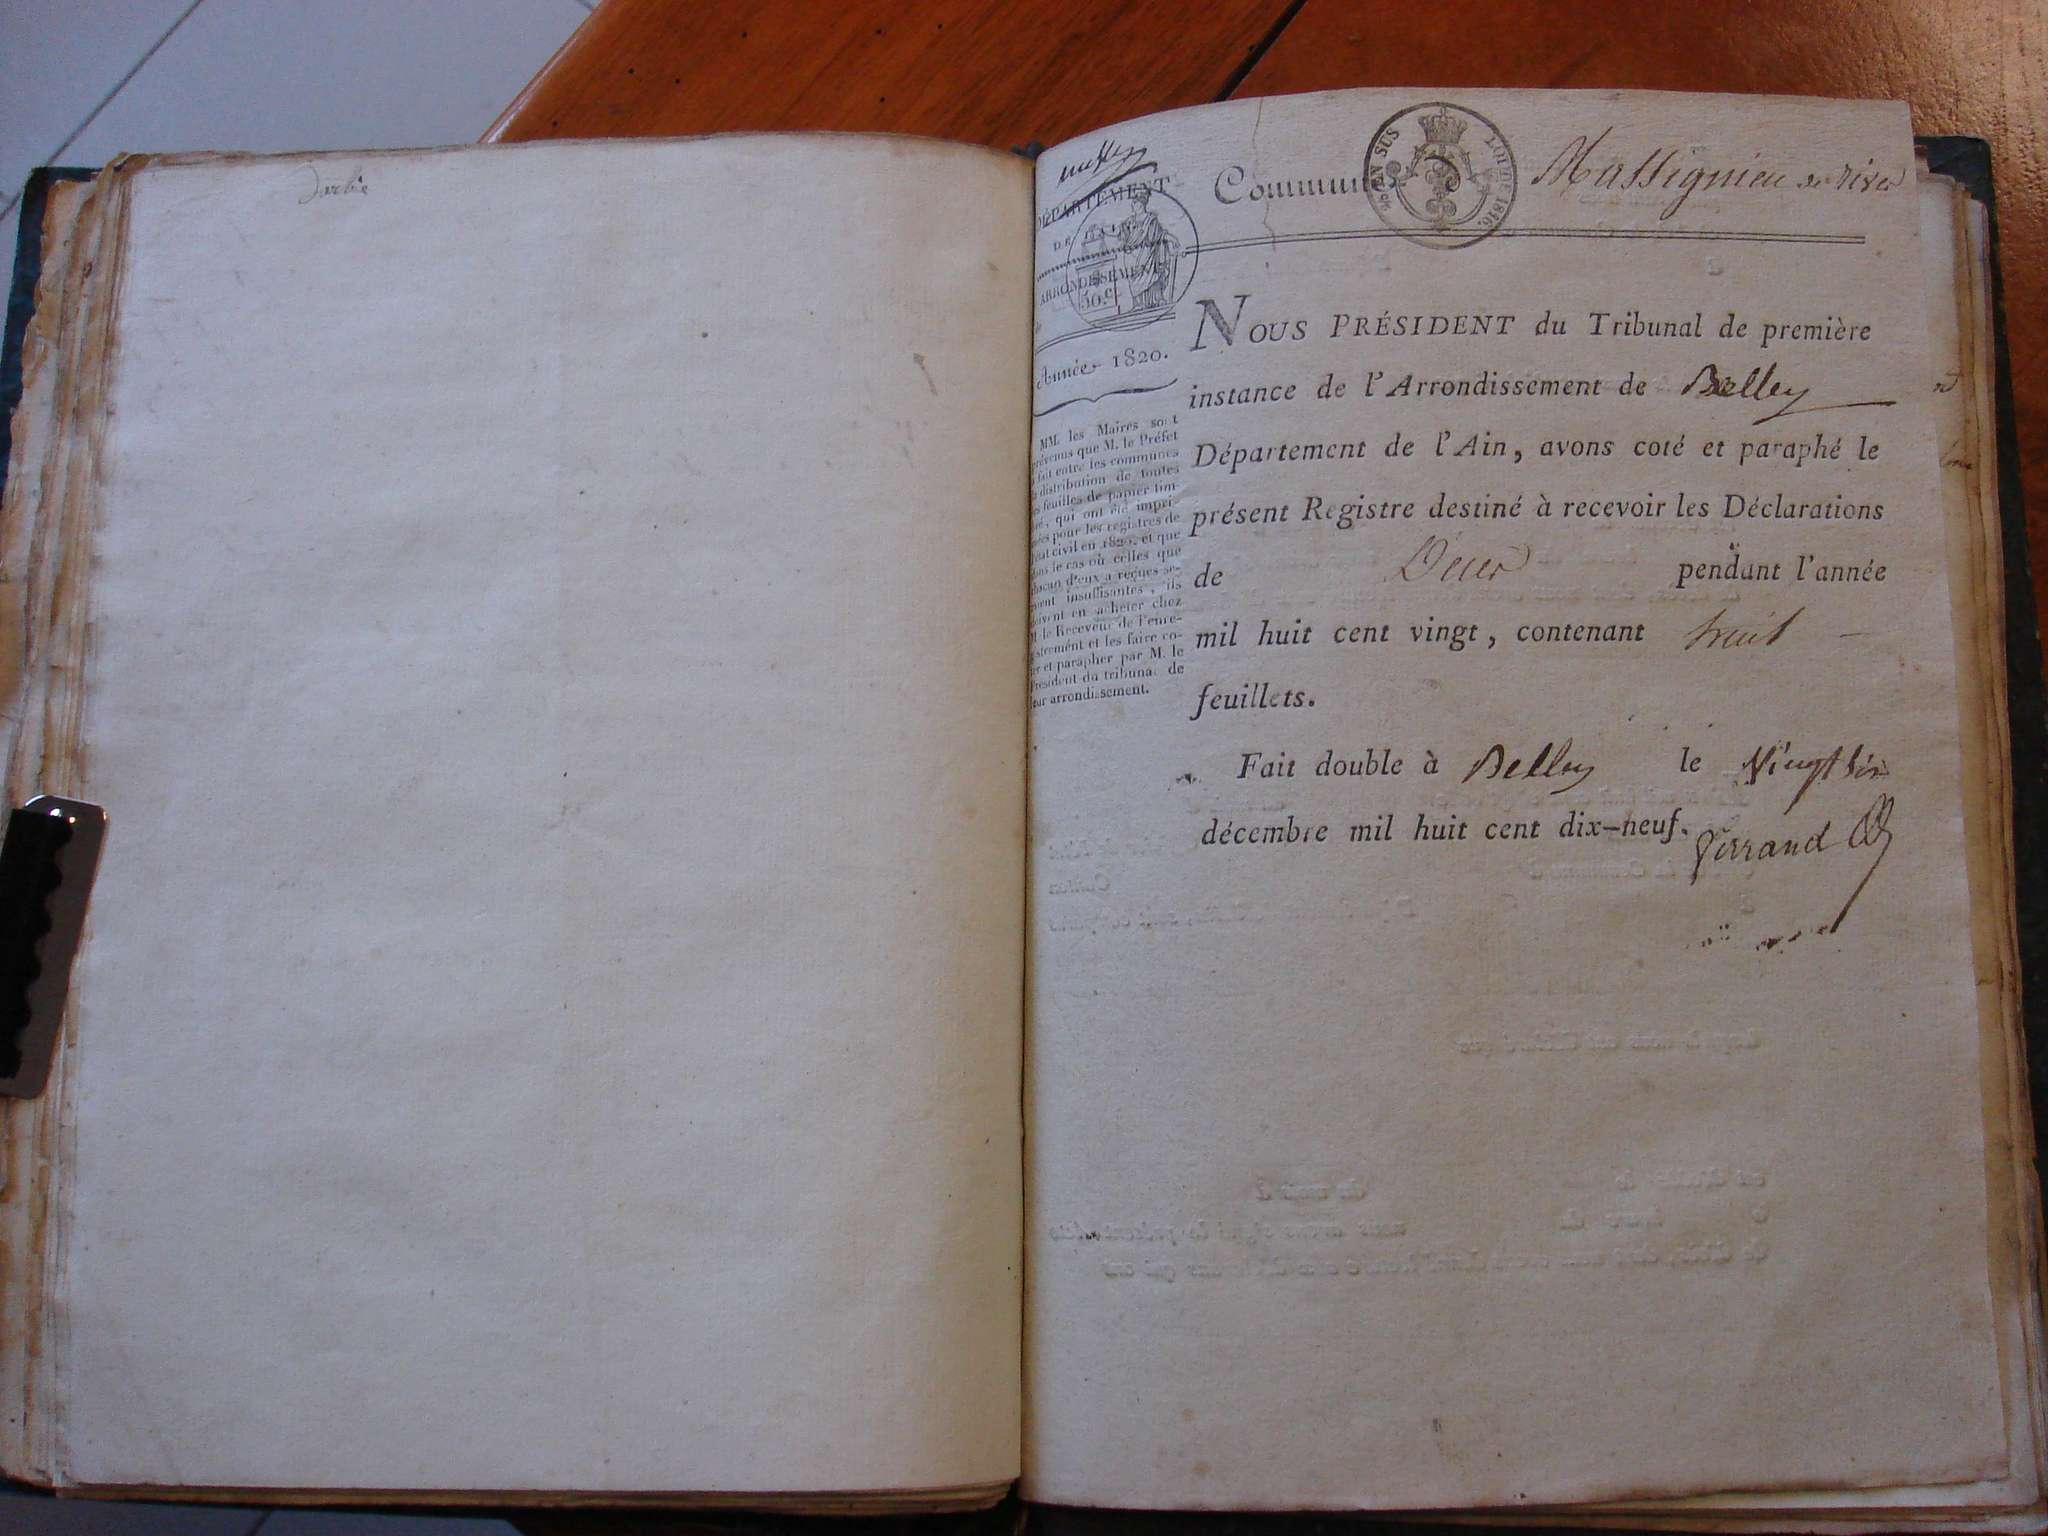 Commune Massignieu de rives
DÉPARTEMENT
DE L'AIN.
ARRONDISSEMENT
50.c
EN SUS
LOI DE 1816.
Année 1820.
MM. les Maires sont
prévenus que M. le Préfet
a fait entre les communes
la distribution de toutes
les feuilles de papier tim-
bré, qui ont été impri-
mées pour les registres de
l'état civil en 1820, et que
dans le cas où celles que
chacun d'eux a reçues se-
roient insuffisantes, ils
doivent en acheter chez
M. le Receveur de l'enre-
gistrement et les faire co-
ter et parapher par M. le
Président du tribunal de
leur arrondissement.
NOUS PRÉSIDENT du Tribunal de première
instance de l'Arrondissement de Belley
Département de l'Ain, avons coté et paraphé le
présent Registre destiné à recevoir les Déclarations
de Décès pendant l'année
mil huit cent vingt, contenant huit
feuillets.
Fait double à Belley le Vingt six
décembre mil huit cent dix-neuf.